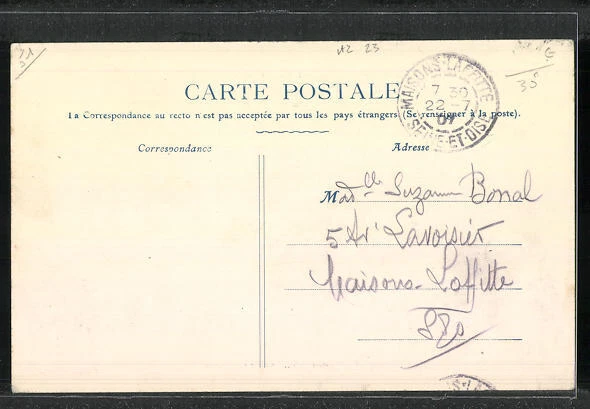 12 23
35
MAISONS-LAFFITTE
7 30
22 -7
07
SEINE-ET-OISE
CARTE POSTALE
La Correspondance au recto n'est pas acceptée par tous les pays étrangers (Se renseigner à la poste).
Correspondance
Adresse
Mad^lle Suzanne Bonal
5 Av^r Lavoisier
Maisons-Laffitte
S&O
S-LA